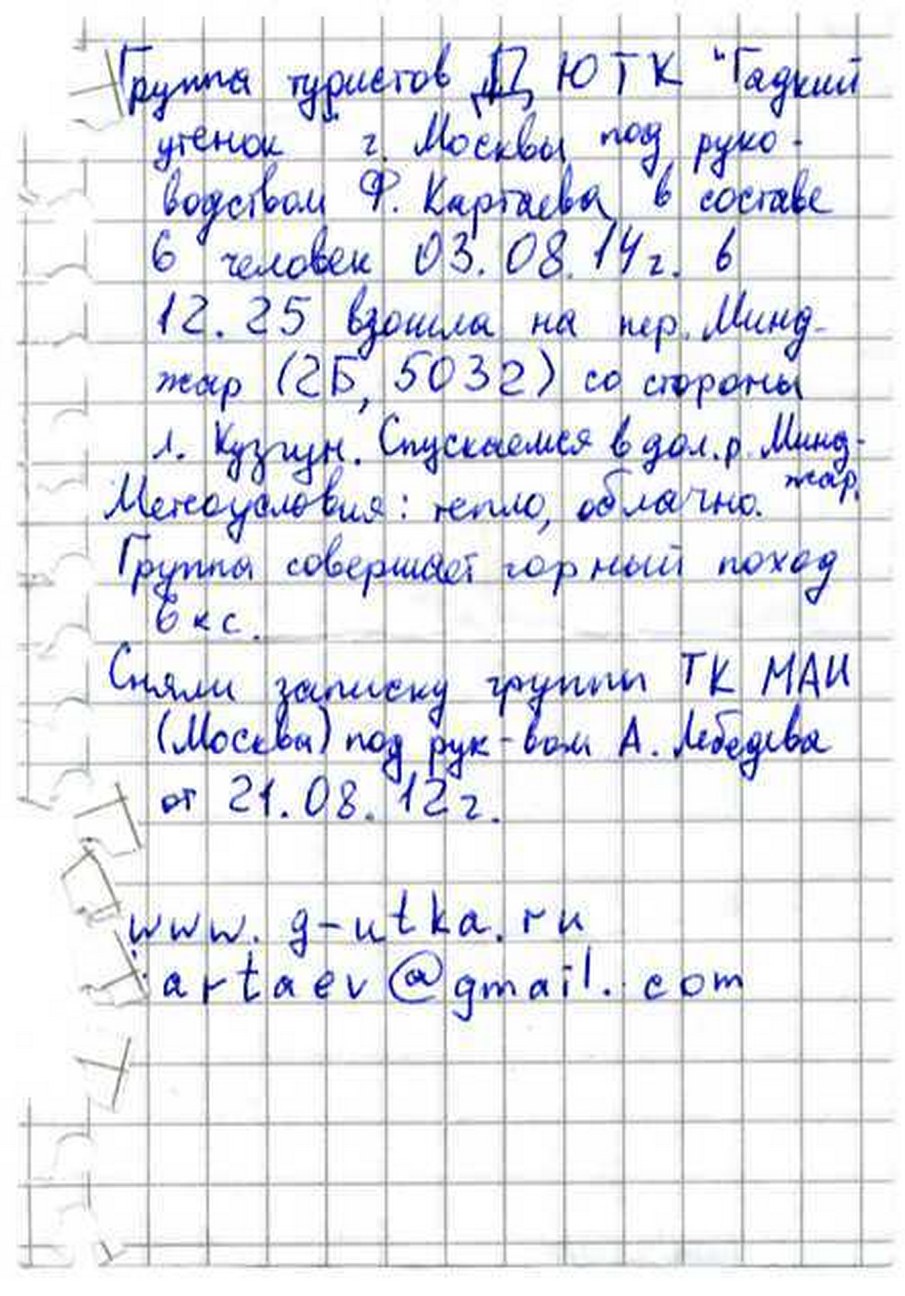 Группа туристов ДЮТК "Гадкий
утёнок" г. Москвы под руко-
водством Ф. Картаева в составе
6 человек 03.08.14г. в
12.25 взошла на пер. Минд-
жар (2Б, 5032) со стороны
л. Кузгун. Спускаемся в дол. р. Минд-
жар.
Метеоусловия: тепло, облачно.
Группа совершает горный поход
6 кс.
Сняли записку группы ТК МАИ
(Москва) под рук-вом А. Лебедева
от 21.08.12г.
www.g-utka.ru
artaev@gmail.com